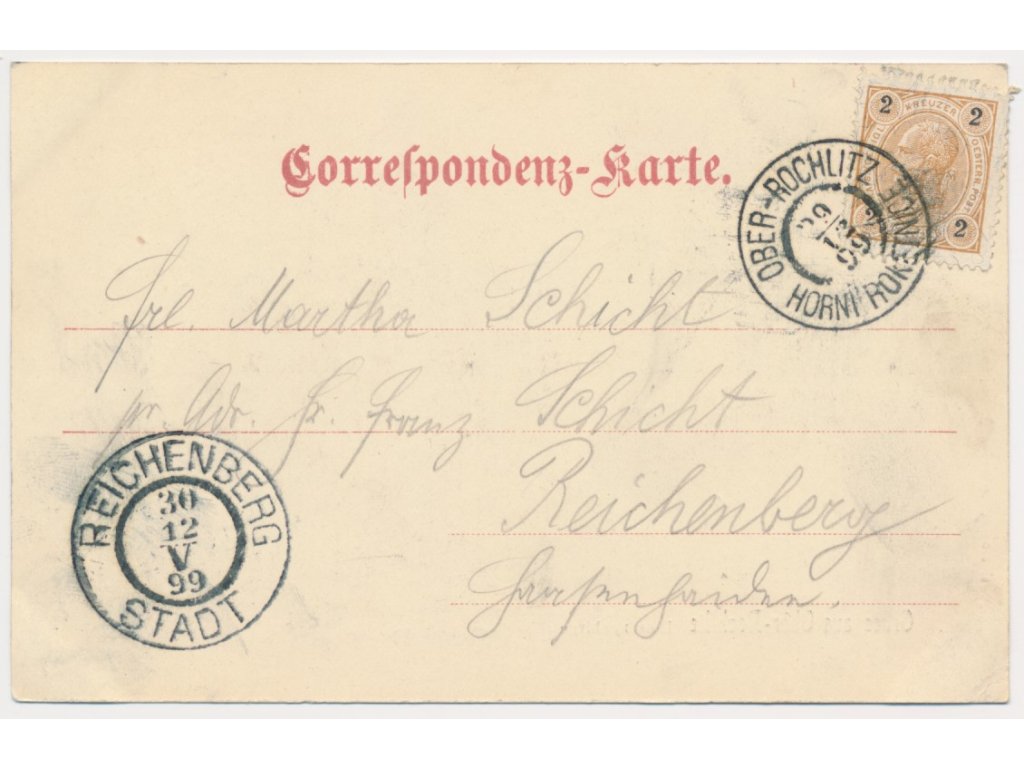 Correspondenz-Karte.
2 KREUZER 2
2
OBER-ROCHLITZ
HORNÍ ROKETNICE
29
12
99
Frl. Martha Schicht
pr. Adr. Hr. Franz Schicht
Reichenberg
REICHENBERG
30
12
V
99
STADT